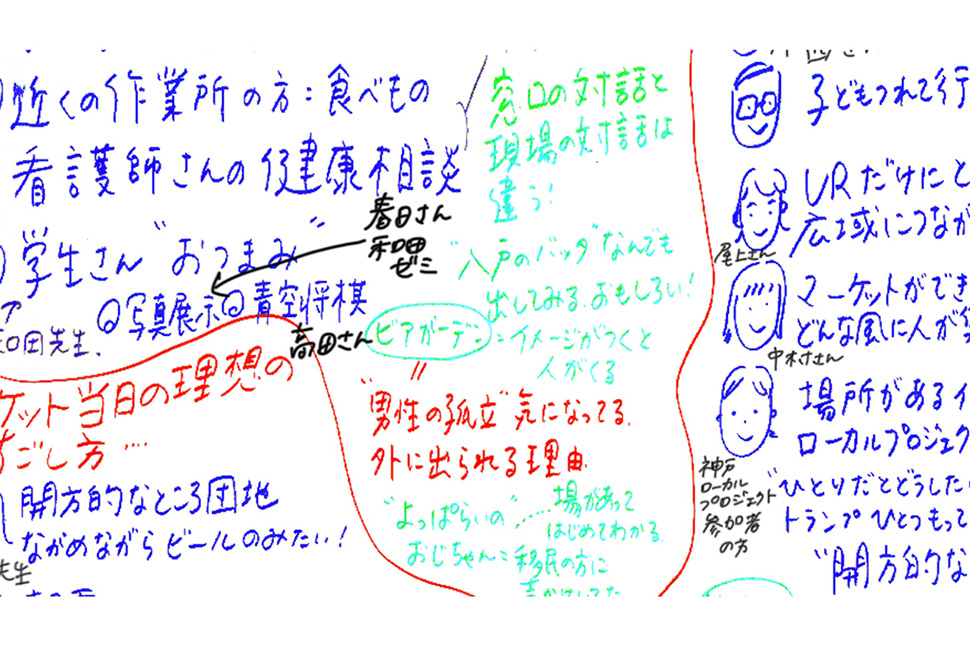 近くの作業所の方:食べもの
看護師さんの健康相談
春田さん
和田
ゼミ
学生さん "おつまみ"
写真展示 青空将棋
和田先生.
高田さん
ケット当日の理想の
すごし方…
開方的なところ団地
ながめながらビールのみたい!
先生
窓口の対話と
現場の対話は
違う!
"八戸のバッタ"なんでも
出してみる.おもしろい!
ビアガーデン=イメージがつくと
人がくる
〃
"男性の孤立"気になってる.
外に出られる理由.
"よっぱらいの……場があって
はじめてわかる.
おじちゃん=移民の方に
声かけしてた
子どもつれて行
URだけにと
広域につなが
尾上さん
マーケットができ
どんな風に人が
中村さん
場所があるイ
ローカルプロジェク
神戸
ローカル
プロジェクト
参加者
の方
"ひとりだとどうしたい
トランプひとつもって
"開方的な